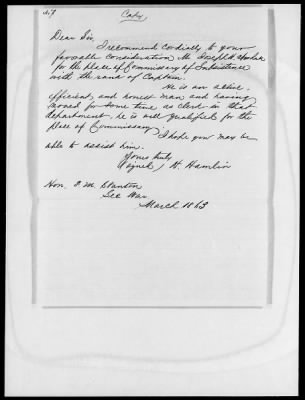 Copy
Dear Sir,
I recommend cordially to your
favorable consideration, Mr. Joseph H.
for the place of Commissary of Subsistence
with the rank of Captain.
He is an active,
efficient and honest man and having
served for some time as clerk in that
department, he is well qualified for the
place of Commissary.
I hope you may be
able to assist him.
Yours truly
Signed, H. Hamlin
Hon. E. M. Stanton
Sec War
March 1863